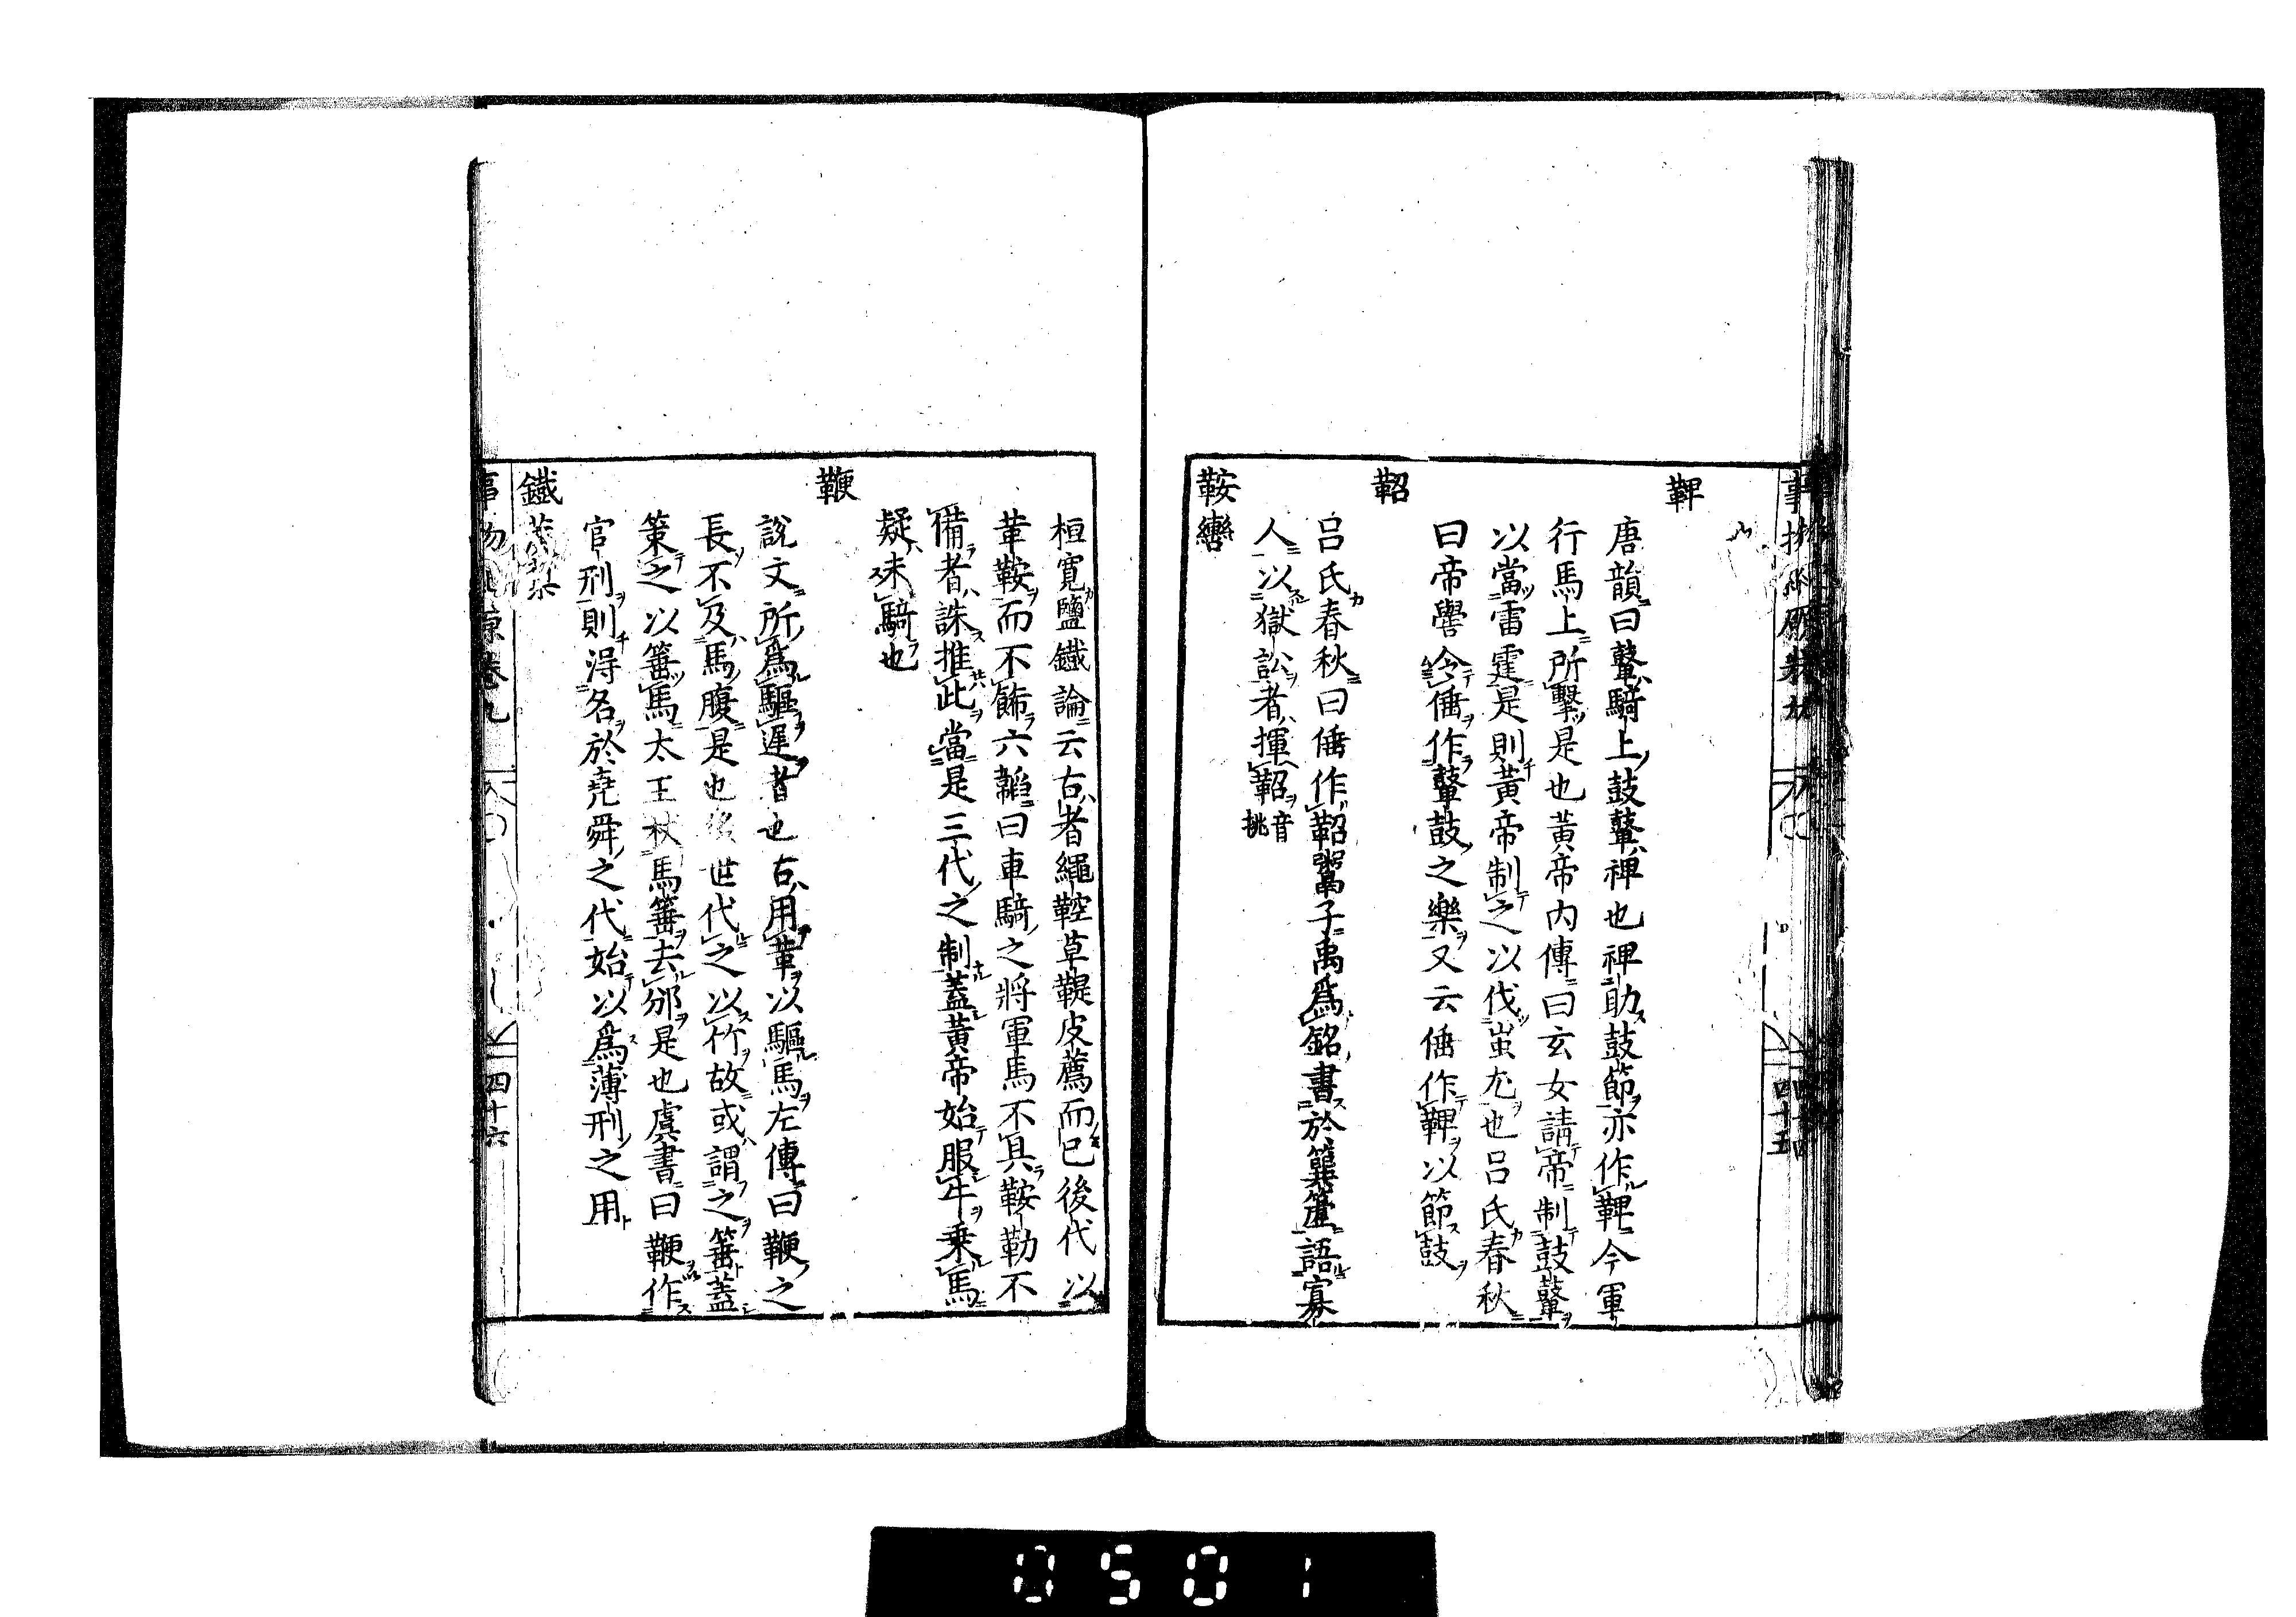 鞞
唐韻曰鼙騎上鼓鼙裨也裨助鼓節亦作鞞今軍
行馬上所擊是也黃帝內傳曰玄女請帝制鼓鼙
以當雷霆是則黃帝制之以伐蚩尤也呂氏春秋
曰帝嚳令倕作鼙鼓之樂又云倕作鞞以節鼓
鞀
呂氏春秋曰倕作鞀鬻子禹爲銘書於簨簴語寡
人以獄訟者揮鞀音挑
鞍轡
桓寬鹽鐵論云古者繩鞚草鞮皮薦而已後代以
革鞍而不飾六韜曰車騎之將軍馬不具鞍勒不
備者誅推此當是三代之制蓋黃帝始服牛乘馬
疑未騎也
鞭
說文所爲驅遲者也古用革以驅馬左傳曰鞭之
長不及馬腹是也後世代之以竹故或謂之箠蓋
策之以箠馬太王杖馬箠去邠是也虞書曰鞭作
官刑則淂名於堯舜之代始以爲薄刑之用
鐵
卷九
四十六